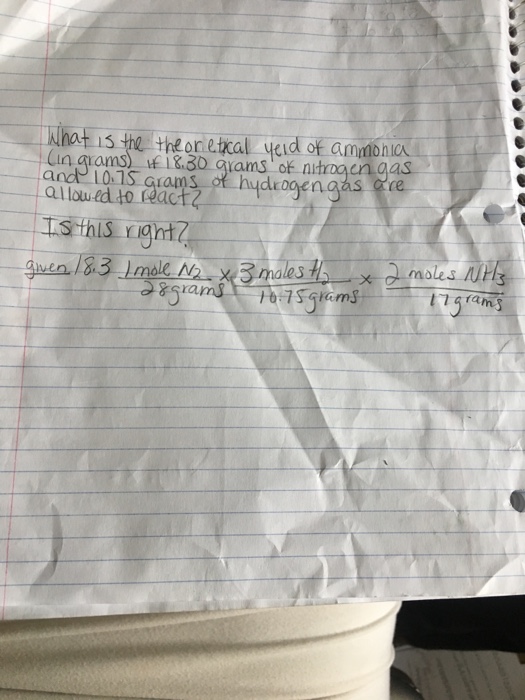 What is the theoretical yeid of ammonia
(in grams) if 18.30 grams of nitrogen gas
and 10.75 grams of hydrogen gas are
allowed to react?
Is this right?
given 18.3 1mole N2 x 3 moles H2 x 2 moles NH3
28grams 10.75grams 17grams